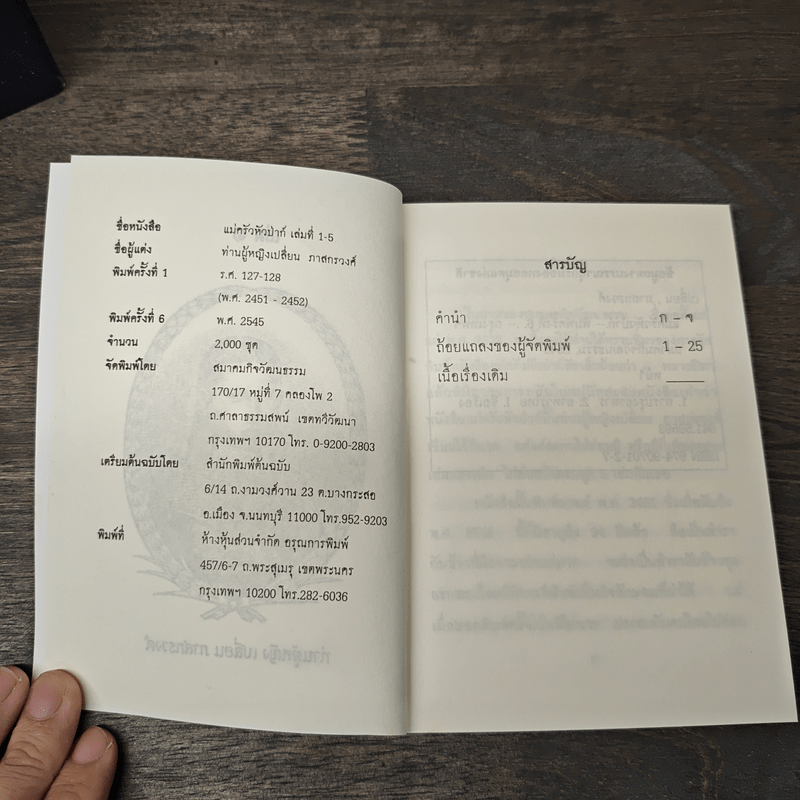 ชื่อหนังสือ แม่ครัวหัวป่าก์ เล่มที่ 1-5
ชื่อผู้แต่ง ท่านผู้หญิงเปลี่ยน ภาสกรวงศ์
พิมพ์ครั้งที่ 1 ร.ศ. 127-128
(พ.ศ. 2451 - 2452)
พิมพ์ครั้งที่ 6 พ.ศ. 2545
จำนวน 2,000 ชุด
จัดพิมพ์โดย สมาคมกิจวัฒนธรรม
170/17 หมู่ที่ 7 คลองโพ 2
ถ.ศาลาธรรมสพน์ เขตทวีวัฒนา
กรุงเทพฯ 10170 โทร. 0-9200-2803
เตรียมต้นฉบับโดย สำนักพิมพ์ต้นฉบับ
6/14 ถ.งามวงศ์วาน 23 ต.บางกระสอ
อ.เมือง จ.นนทบุรี 11000 โทร.952-9203
พิมพ์ที่ ห้างหุ้นส่วนจำกัด อรุณการพิมพ์
457/6-7 ถ.พระสุเมรุ เขตพระนคร
กรุงเทพฯ 10200 โทร.282-6036
สารบัญ
คำนำ ก - จ
ถ้อยแถลงของผู้จัดพิมพ์ 1 - 25
เนื้อเรื่องเดิม